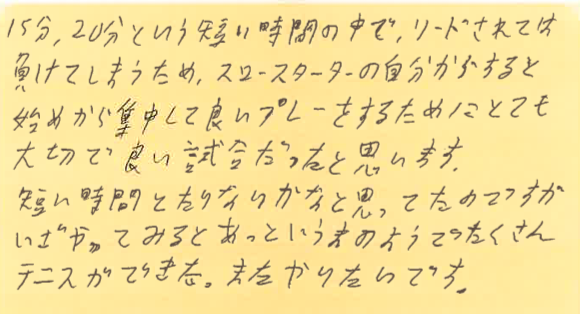 15分、20分という短い時間の中で、リードされては
負けてしまうため、スロースターターの自分からすると
始めから集中して良いプレーをするためにとても
大切で良い試合だったと思います。
短い時間とたりないかなと思ってたのですが
いざやってみるとあっというまのようでたくさん
テニスができた。またやりたいです。